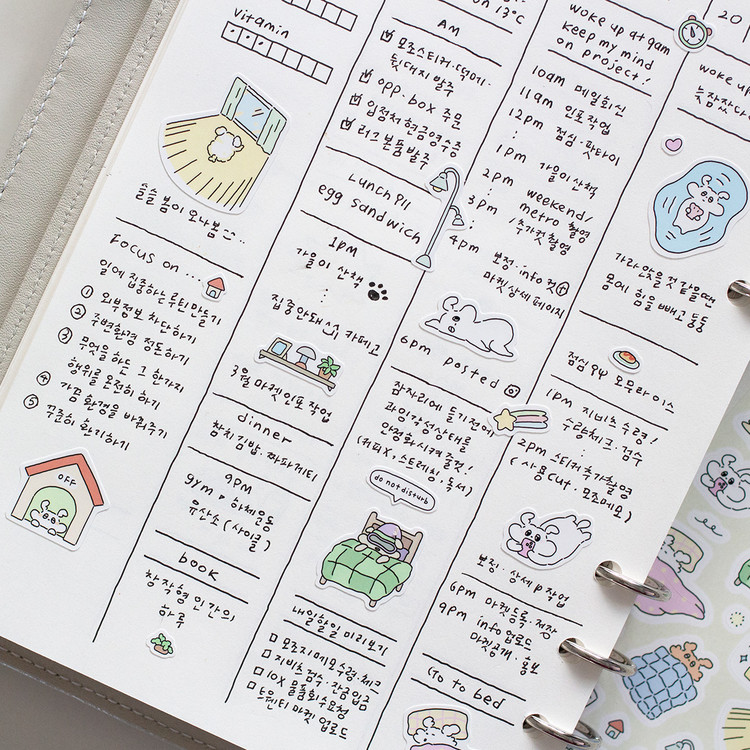 vitamin
슬슬 봄이 오나봄
Focus on ...
일에 집중하는 루틴 만들기
① 외부정보 차단하기
② 주변환경 정돈하기
③ 무엇을 하든 그 한가지
행위를 온전히 하기
④ 가끔 환경을 바꿔주기
⑤ 꾸준히 환기하기
OFF
on 13°C
AM
모조스티커·떡메·
띳대지 발주
opp. box 주문
입점처 현금영수증
리그본품 발주
Lunch 9th
egg sandwich
1PM
가을이 산책
집중안돼 카페고
3월 마켓 인포 작업
dinner
참치김밥·짜파게티
9PM
gym · 하체운동
유산소 (사이클)
book
창작형 인간의
하루
woke up at 9am
keep my mind
on project!
10am 메일회신
11am 인포작업
12pm 점심·팟타이
1pm 가을이 산책
2pm weekend/
3pm metro 촬영
/추가컷 촬영
4pm 보정·info 컷
마켓상세페이지
6pm posted
잠자리에 들기 전에
과잉각성상태를
안정화시켜줄것!
(커피X, 스트레칭, 독서)
do not disturb
내일할일 미리보기
모조지메모 수령·체크
지비츠 검수·잔금입금
10X 용품회수요청
트웬티 마켓 업로드
20
woke up
늦잠잤다
가라앉을것 같을땐
몸에 힘을 빼고 둥둥
점심 오므라이스
1pm 지비츠 수령!
수량체크·검수
2pm 스티커 추가촬영
(사용cut·모조메모)
보정·상세p 작업
6pm 마켓등록·저장
9pm info 업로드
마켓공개·홍보
Go to bed